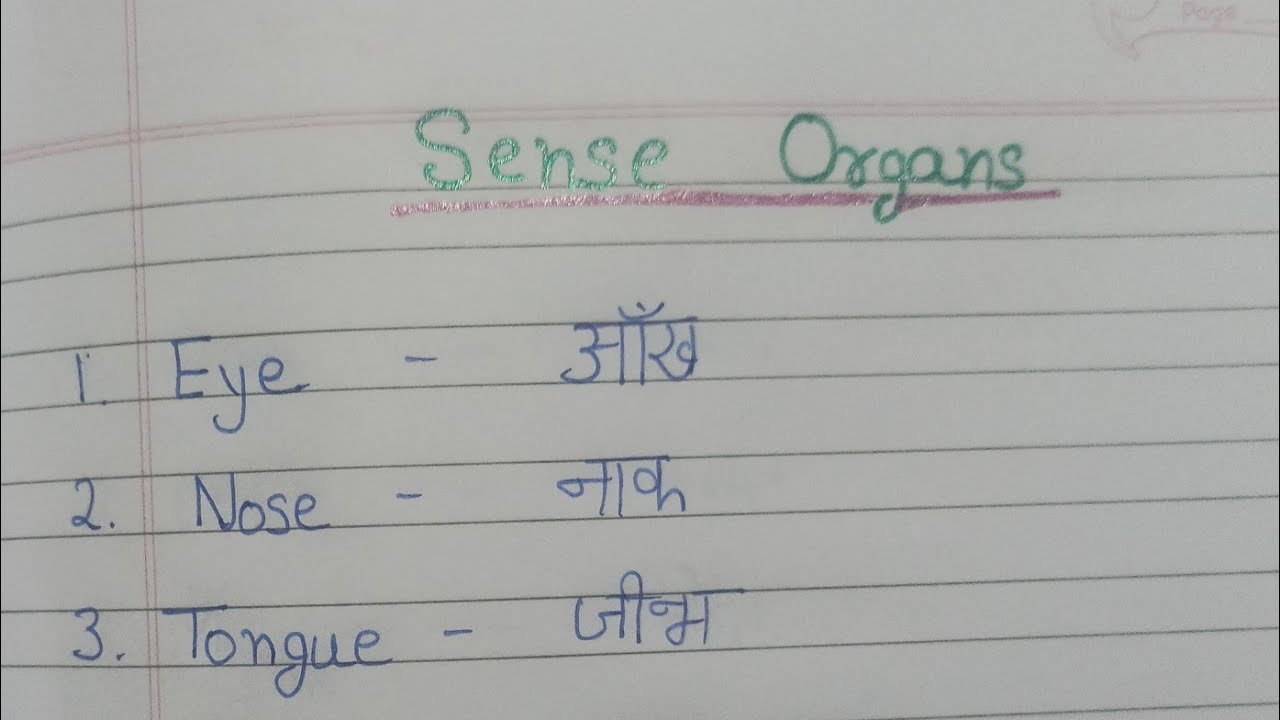 Page
Sense Organs
1. Eye - आँख
2. Nose - नाक
3. Tongue - जीभ